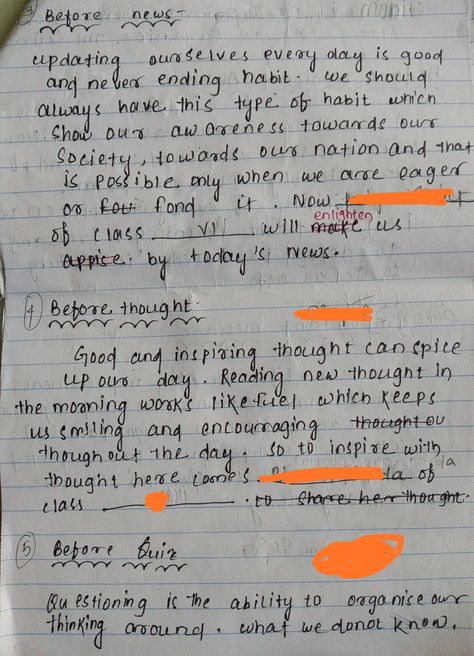 ③ Before news -
updating ourselves every day is good
and never ending habit. we should
always have this type of habit which
Show our awareness towards our
Society, towards our nation and that
is possible only when we are eager
or fou fond it. Now
of class VI will make enlighten us
appise by today's News.
④ Before thought.
Good and inspiring thought can spice
up our day. Reading new thought in
the morning works like fuel which keeps
us smiling and encouraging thought ou
thoughout the day. so to inspire with
thought here comes la of
class . to share her thought.
⑤ Before Quiz
Questioning is the ability to organise our
thinking around. what we donot know.